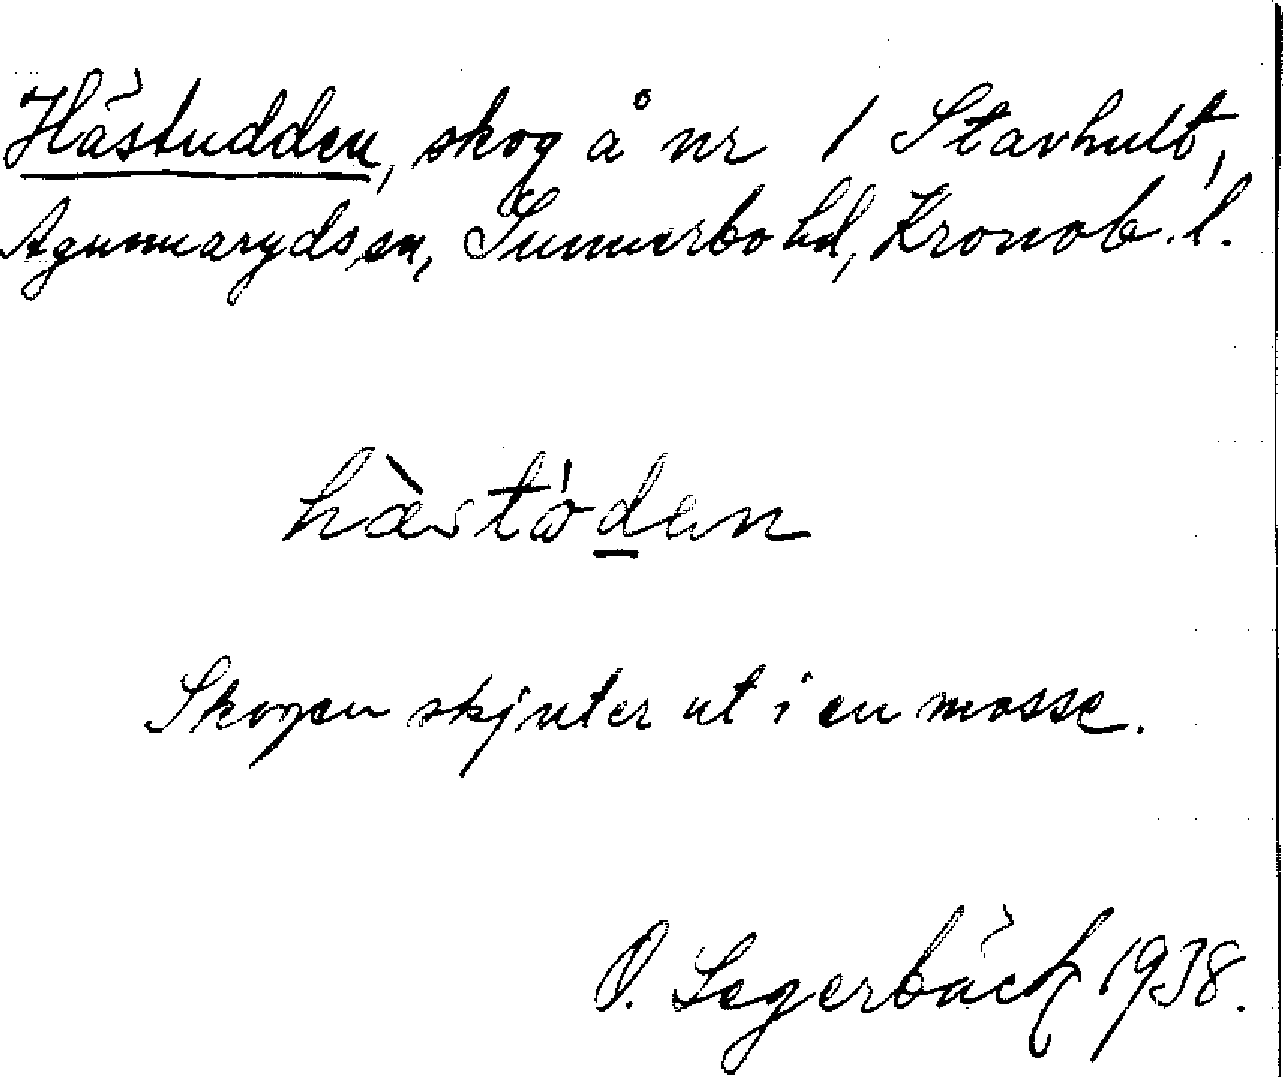 Hästudden, skog å nr 1 Stavhult,
Agunnaryds sn, Sunnerbo hd, Kronob. l.
hæ̀stødan
Skogen skjuter ut i en mosse.
O. Segerbäck 1938.